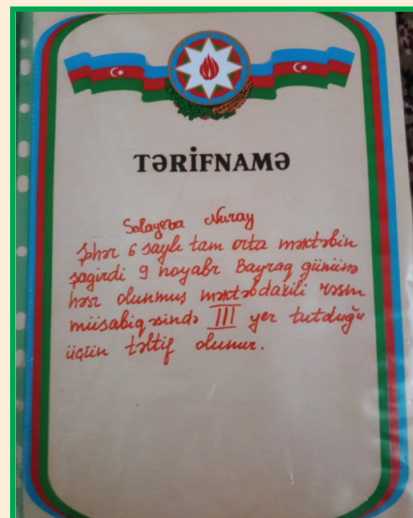 TƏRİFNAMƏ
Salayeva Nuray
Şəhər 6 saylı tam orta məktəbin
şagirdi 9 noyabr Bayraq gününə
həsr olunmuş məktəbdaxili rəsm
müsabiqəsində III yer tutduğu
üçün təltif olunur.